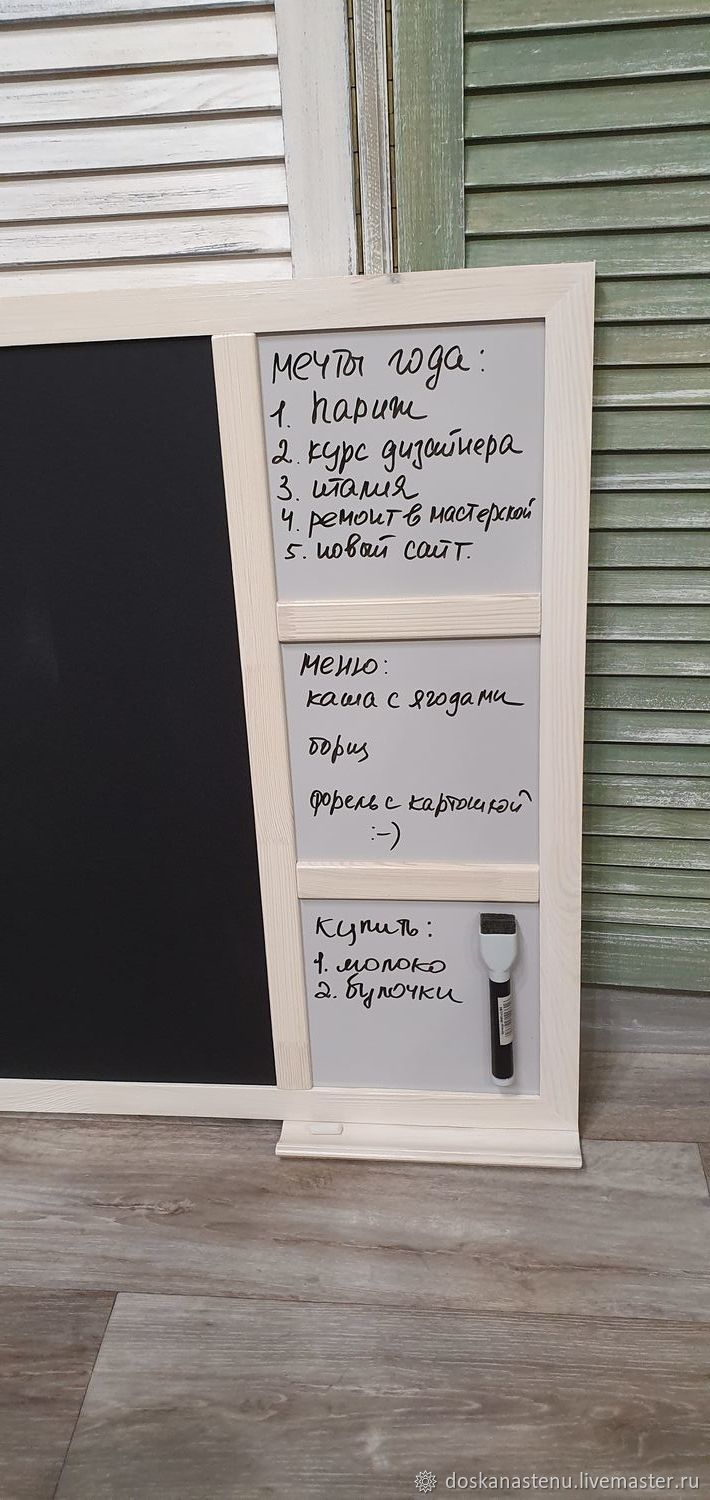 мечты года:
1. париж
2. курс дизайнера
3. италия
4. ремонт в мастерской
5. новый сайт.
меню:
каша с ягодами
борщ
форель с картошкой
:-)
купить:
1. молоко
2. булочки
doskanastenu.livemaster.ru